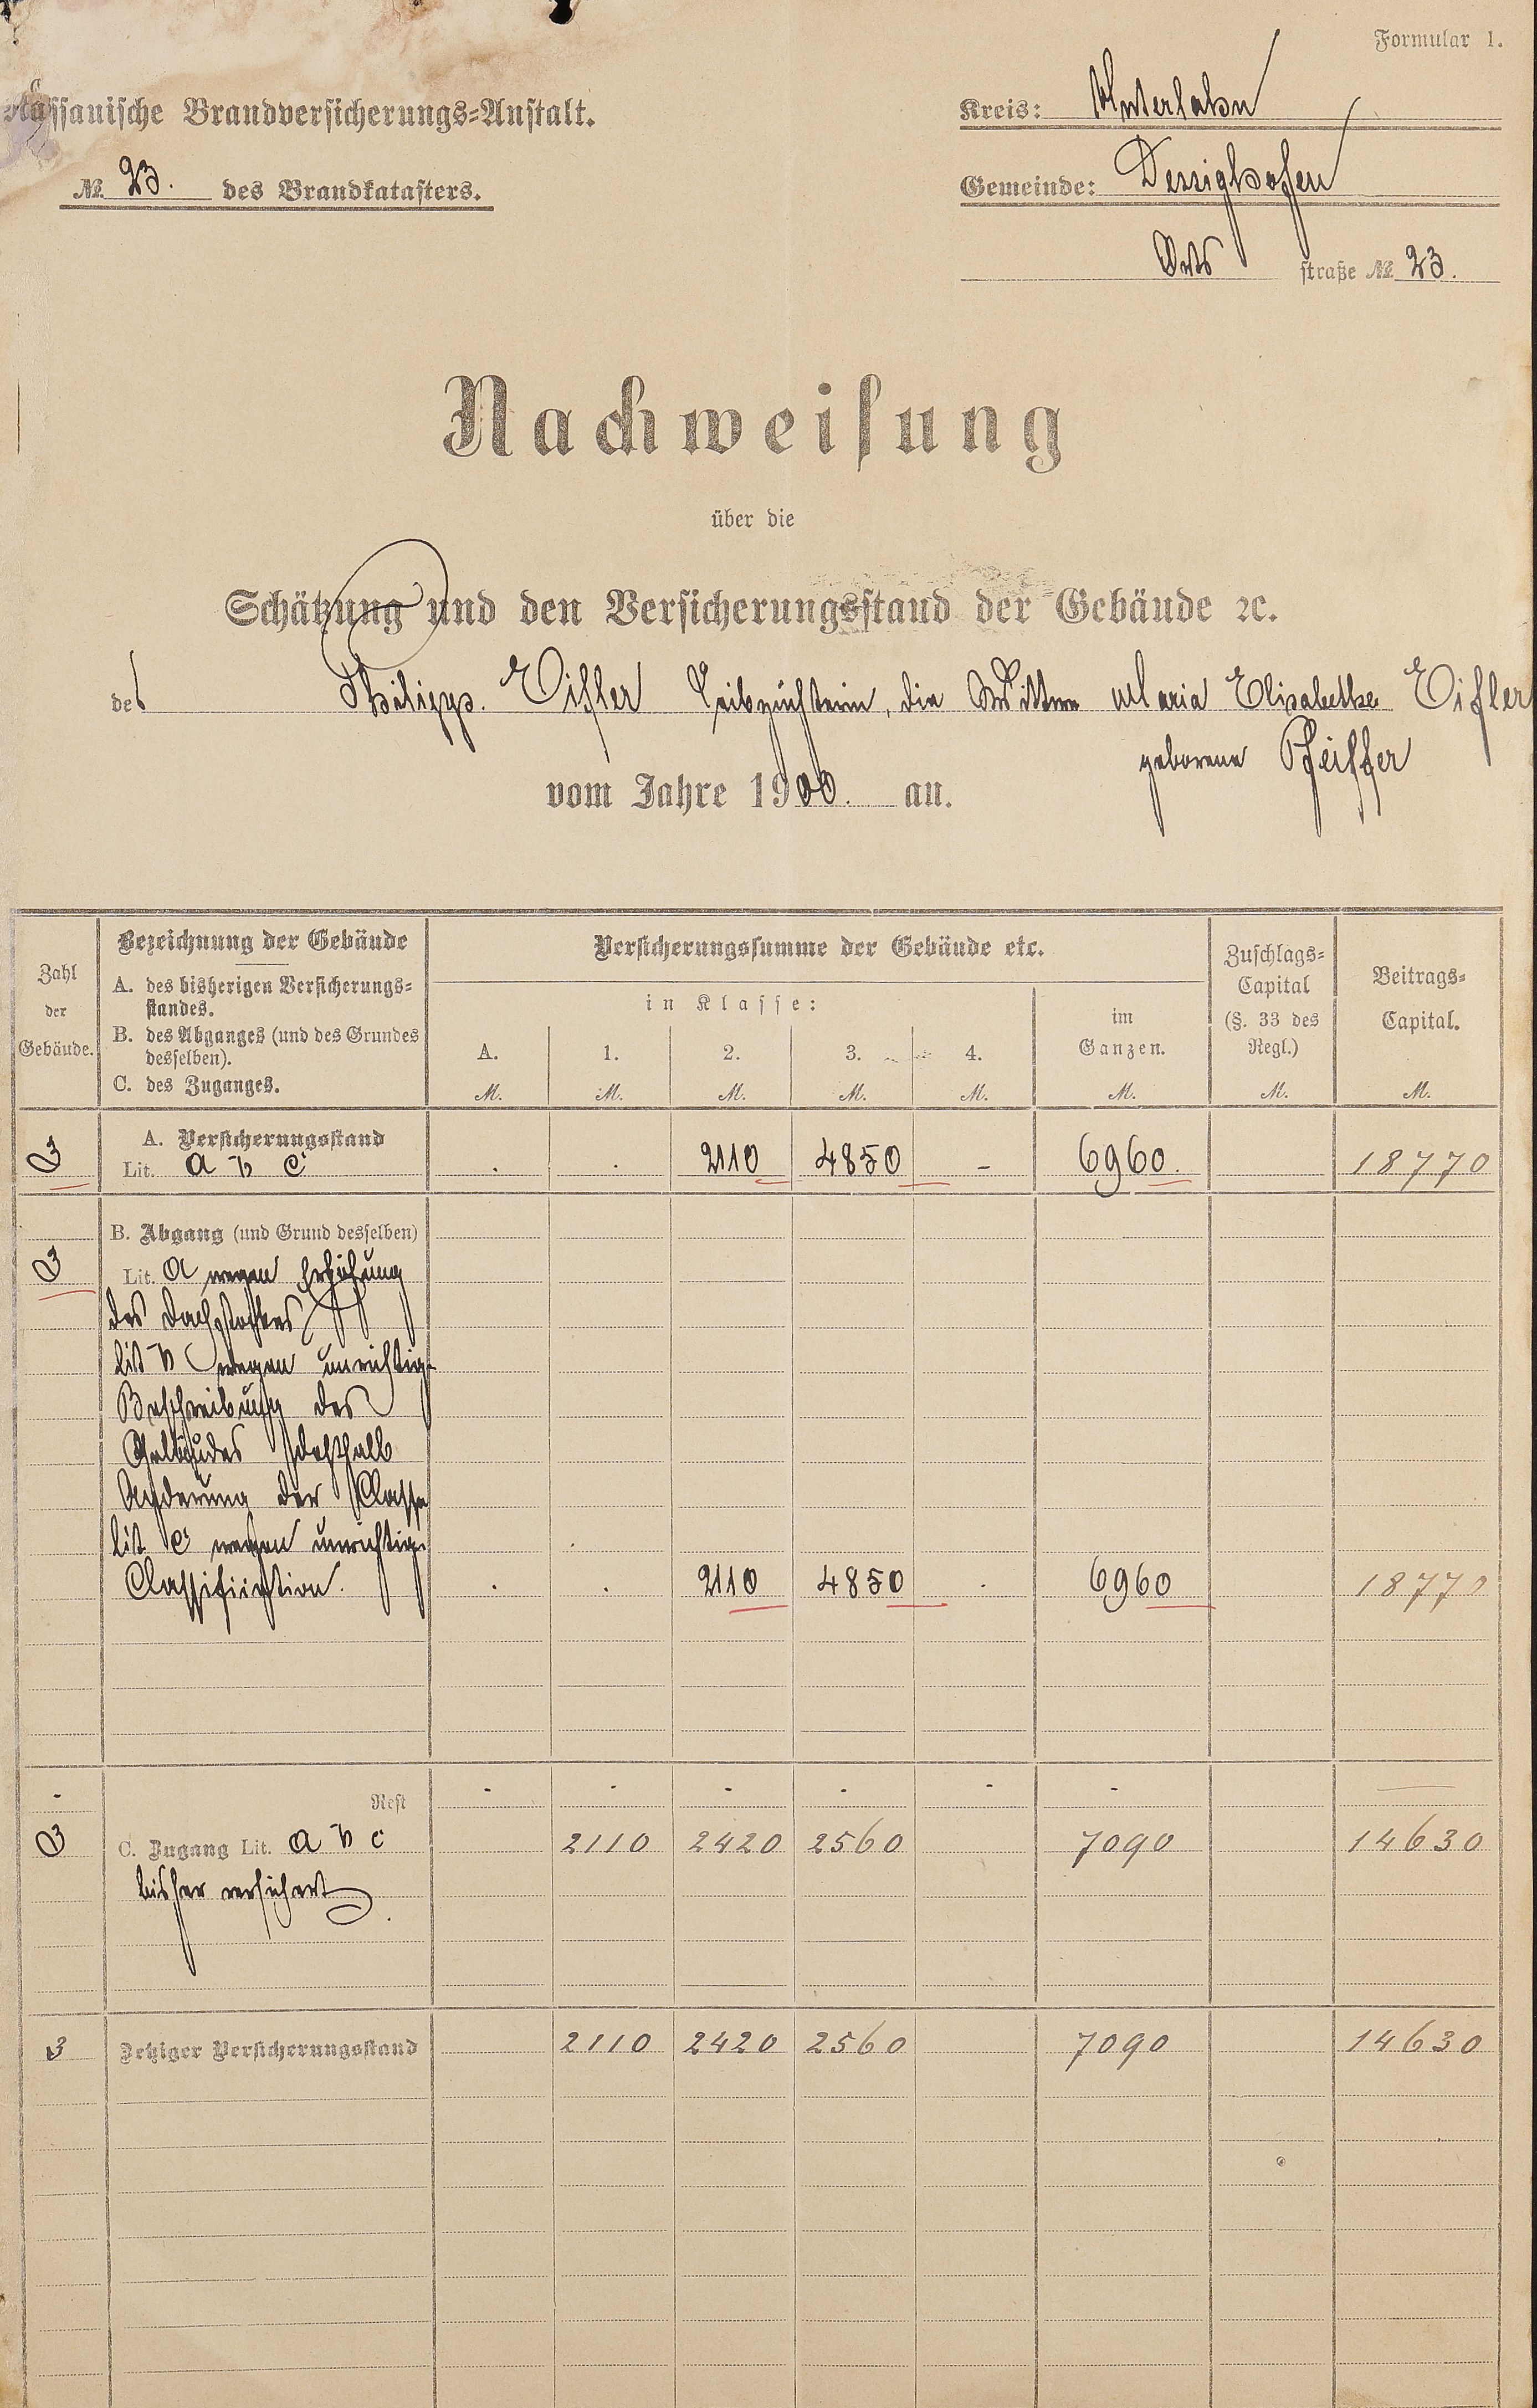 Formular 1.
Nassauische Brandversicherungs-Anstalt.
Kreis: Unterlahn
№ 23. des Brandkatasters.
Gemeinde: Dessighofen
Orts straße № 23.
Nachweisung
über die
Schätzung und den Versicherungsstand der Gebäude ꝛc.
des Philipp Eisler Leibzüchterin, die Wittwe Maria Elisabethe Eisler
geborene Pfeiffer
vom Jahre 1900. an.
Zahl der Gebäude.
Bezeichnung der Gebäude
A. des bisherigen Versicherungs-
standes.
B. des Abganges (und des Grundes
desselben).
C. des Zuganges.
Versicherungssumme der Gebäude etc.
in Klasse:
A. 1. 2. 3. 4.
M. M. M. M. M.
im
Ganzen.
M.
Zuschlags-
Capital
(§. 33 des
Regl.)
M.
Beitrags-
Capital.
M.
A. Versicherungsstand
3 Lit. a b c . . 2110 4850 - 6960. 18770
B. Abgang (und Grund desselben)
3 Lit. a wegen Erhöhung
des Dachstockes
Lit b wegen unrichtig.
Beschreibung des
Gebäudes deßhalb
Aenderung der Classe
Lit c wegen unrichtig.
Classification. . . 2110 4850 . 6960 18770
- Rest - - - - - -
3 C. Zugang Lit. a b c 2110 2420 2560 7090 14630
bisher versichert.
3 Jetziger Versicherungsstand 2110 2420 2560 7090 14630